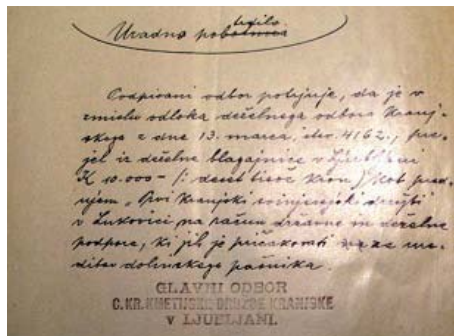 Uradno potrdilo.
Podpisani odbor potrjuje, da je v
smislu odloka deželnega odbora Kranj-
skega z dne 13. marca, štev. 4162., pre-
jel iz deželne blagajnice v Ljubljani
K 10.000 – /: deset tisoč kron :/ kot pred-
ujem „Prvi kranjski svinjerejski zadrugi
v Lukovici na račun državne in deželne
podpore, ki jih je pričakovati za
ditev dolinskega pašnika.
GLAVNI ODBOR
C. KR. KMETIJSKE DRUŽBE KRANJSKE
v LJUBLJANI.